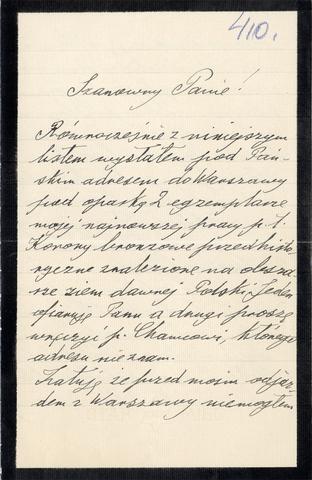 410.
Szanowny Panie!
Równocześnie z niniejszym
listem wysłałem pod Pań-
skim adresem do Warszawy
pod opaską 2 egzemplarze
mojej najnowszej pracy p. t.
Korony bronzowe przedhisto-
ryczne znalezione na obsza-
rze ziem dawnej Polski. Jeden
ofiaruję Panu a drugi proszę
wręczyć p. Chamcowi, którego
adresu nie znam.
Żałuję że przed moim odjaz-
dem z Warszawy niemogłem